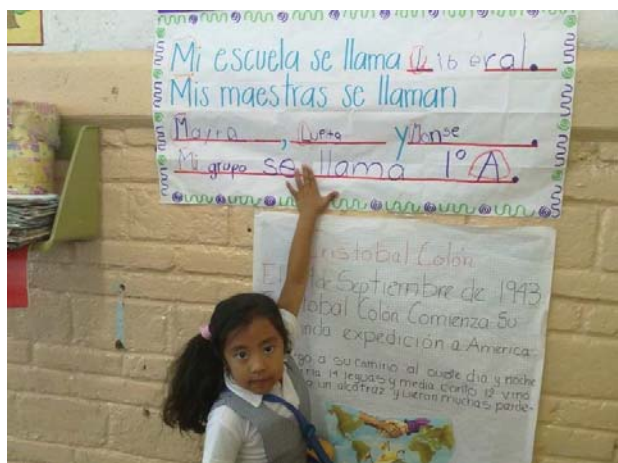 Mi escuela se llama Liberal.
Mis maestras se llaman
Mayra, y Monse.
Mi grupo se llama 1° A.
Cristobal Colón
El de Septiembre de 1943
Colón Comienza Su
expedición a America
a su camino al oeste dia y noche
14 leguas y media conto 12 vino
un alcatraz y vieron muchas parde-